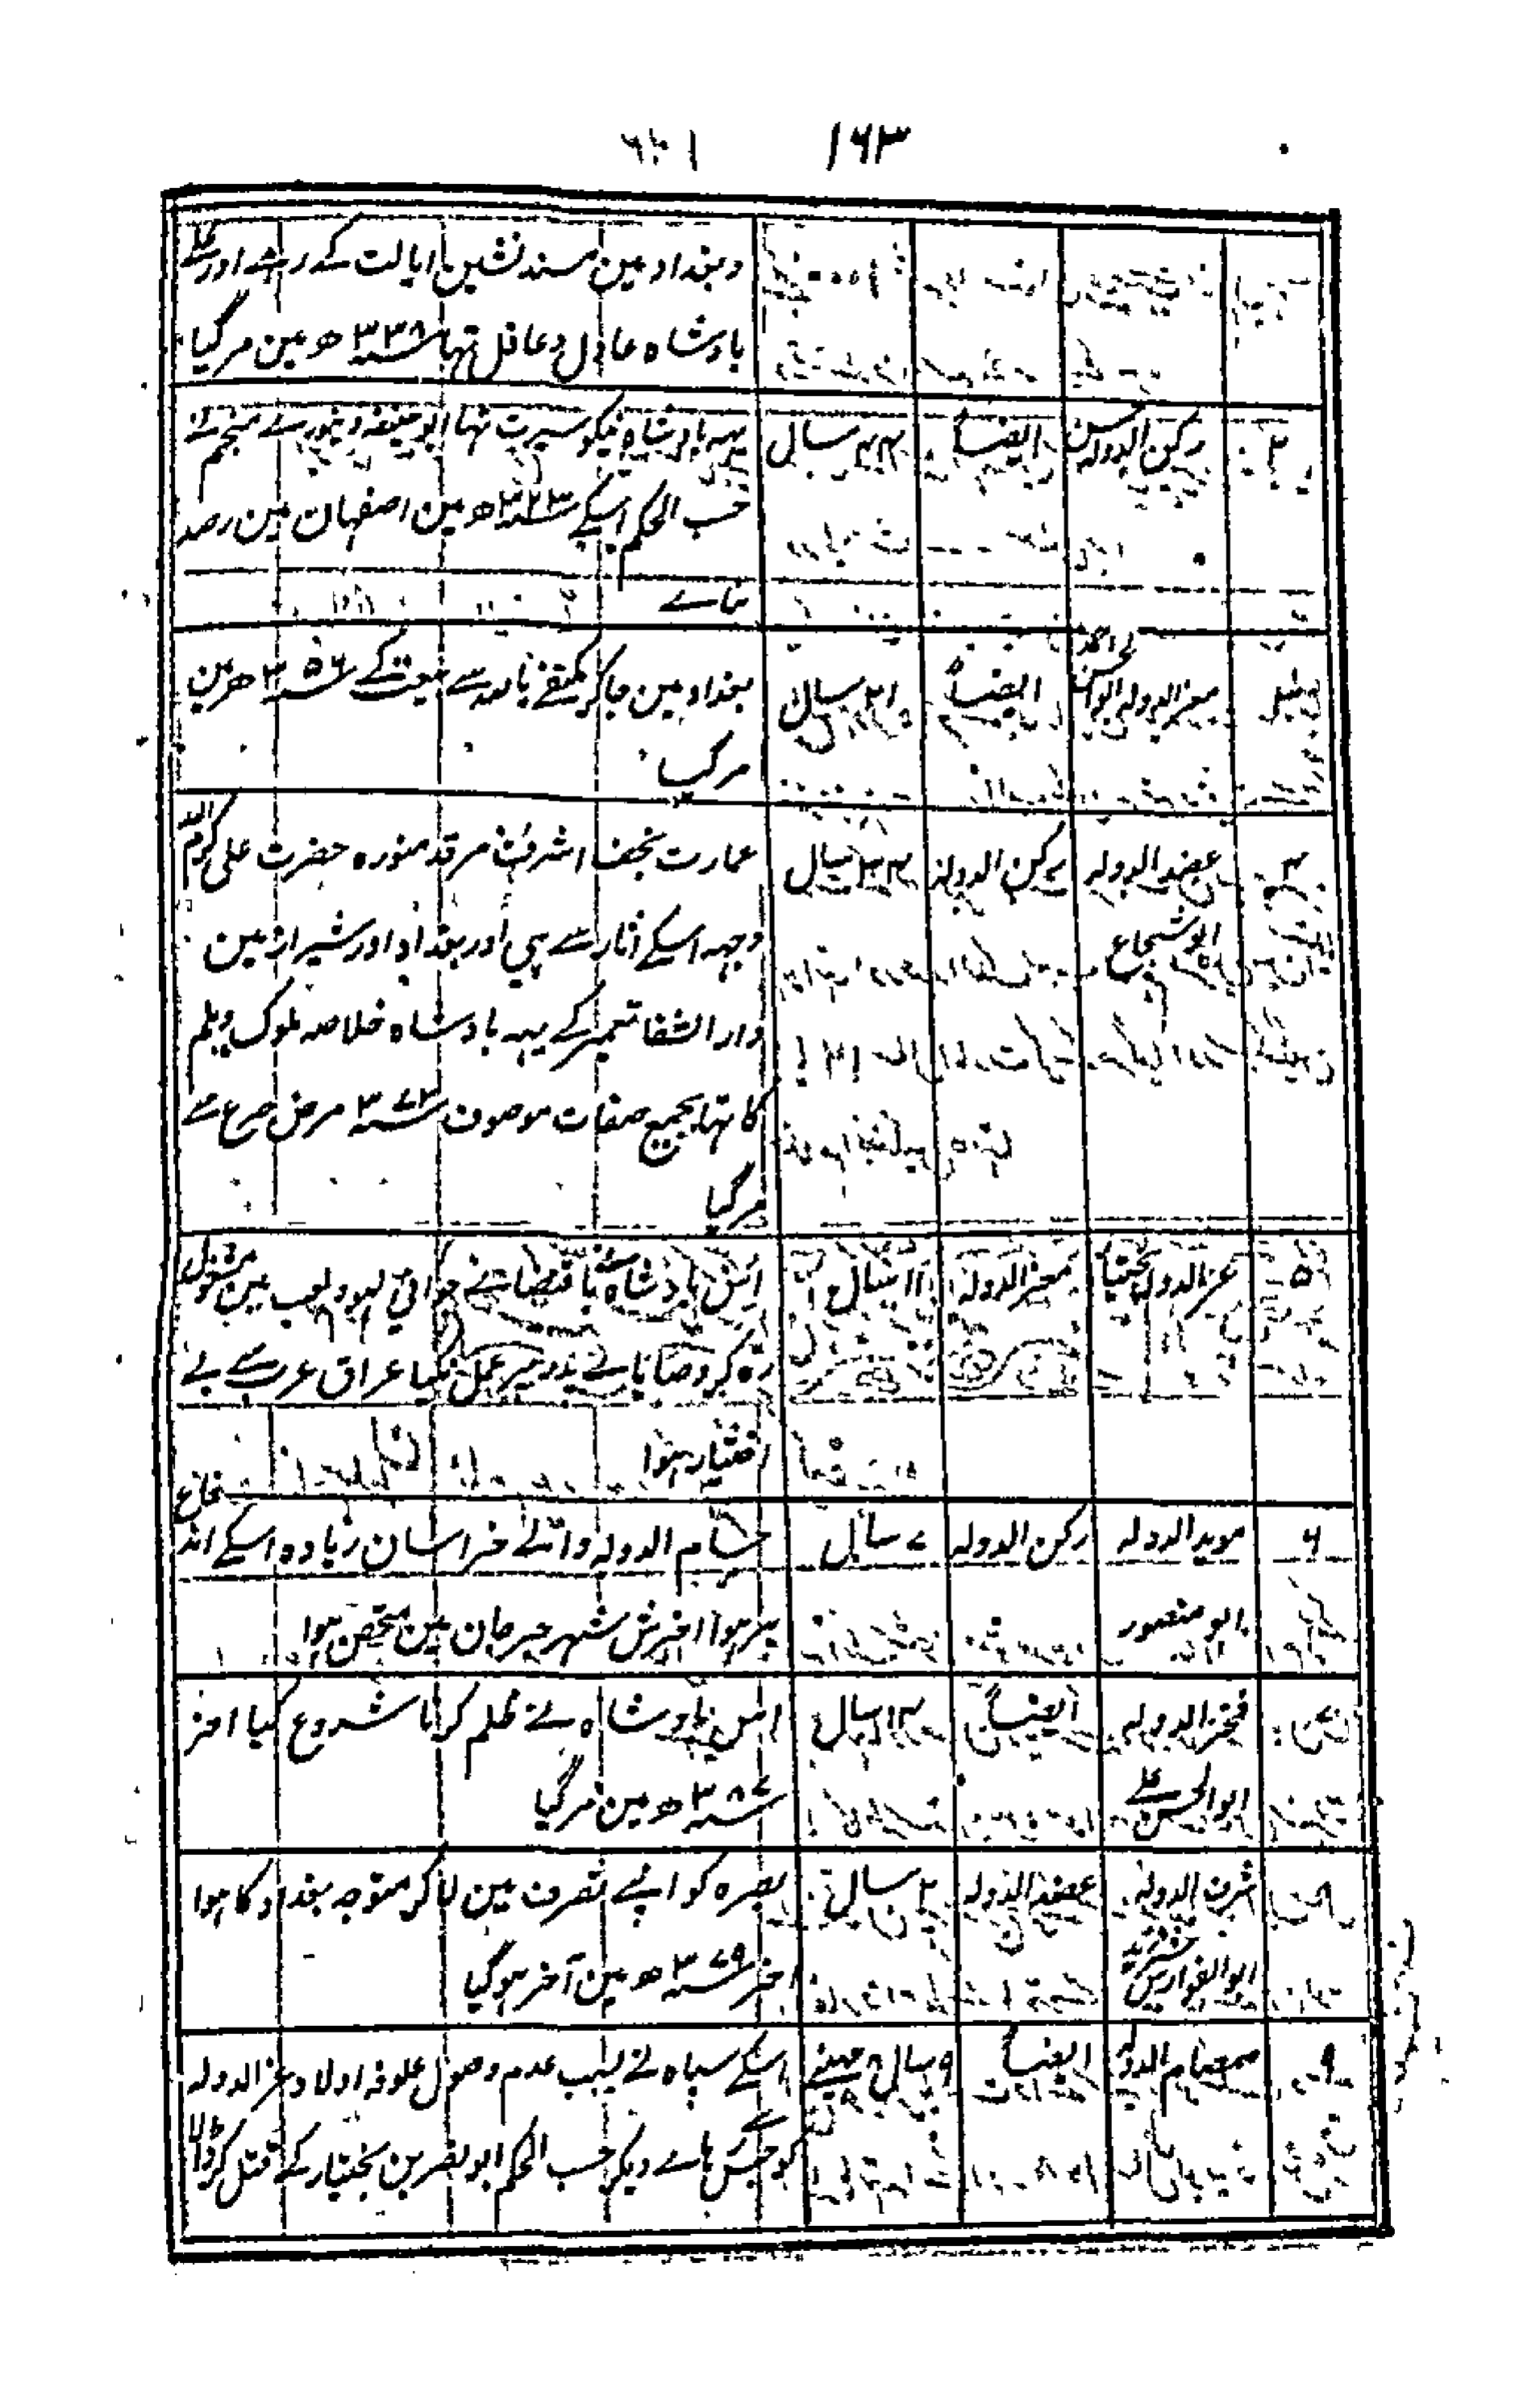 ۱۶۳
و بغداد مین مسند نشین ایالت کے رہے اور علی
بادشاہ عادل و عاقل تہا سنہ ۳۳۸ ھ مین مر گیا
۲ رکن الدولہ حسن ایضاً ۴۴ سال یہہ بادشاہ نیکو سیرت تہا ابو حنیفہ دینوری منجم نے
حسب الحکم اسکے سنہ ھ مین اصفہان مین رصد
بنائے
معز الدولہ ابو الحسن احمد ایضاً ۲۱ سال بغداد مین جا کر مکتفے باللہ سے بیعت کے سنہ ۳۵۶ ھ مین
مر گیا
۴ عضد الدولہ رکن الدولہ ۳۴ سال عمارت نجف اشرف مرقد منورہ حضرت علی کرم اللہ
ابو شجاع وجہہ اسکے اثار سے ہی اور بغداد اور شیراز مین
دار الشفا تعمیر کے یہہ بادشاہ خلاصہ ملوک دیلم
کا تہا بجمیع صفات موصوف سنہ ۳۷۲ مرض صرع سے
مر گیا
۵ عز الدولہ بختیار معز الدولہ ۱۱ سال اس بادشاہ نے باقتضائے جوانی لہو و لعب مین مشغول
رہ کر وصایائے پدر پر عمل نکیا عراق عرب سے بے
اختیار ہوا
۶ موید الدولہ رکن الدولہ ۷ سال حسام الدولہ والئے خراسان زیادہ اسکے اند
ابو منصور پر ہوا اخرش شہر جرجان مین متحصن ہوا
۷ فخر الدولہ ایضاً ۱۴ سال اس بادشاہ نے ظلم کرنا شروع کیا اخر
ابو الحسن علی سنہ ۳۸۷ ھ مین مر گیا
شرف الدولہ عضد الدولہ ۲ سال بصرہ کو اپنے تصرف مین لا کر متوجہ بغداد کا ہوا
ابو الفوارس اخر سنہ ۳۷۹ ھ مین آخر ہو گیا
۹ صمصام الدولہ ایضاً ۹ سال ۸ مہینے اسکے سپاہ نے بسبب عدم وصول علوفہ اولاد عز الدولہ
کو حبس سے رہائے دیکر حسب الحکم ابو نصر بن بختیار کے قتل کر ڈالا